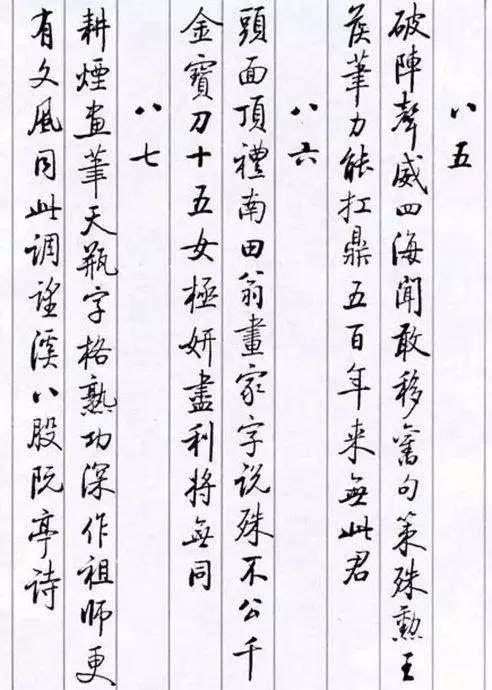 八五
破陣聲威四海聞敢移舊句策殊勳王
侯筆力能扛鼎五百年来無此君
八六
頭面頂禮南田翁畫家字說殊不公千
金寶刀十五女極妍盡利將無同
八七
耕煙畫筆天瓶字格熟功深作祖師更
有文風同此調望溪八股阮亭詩